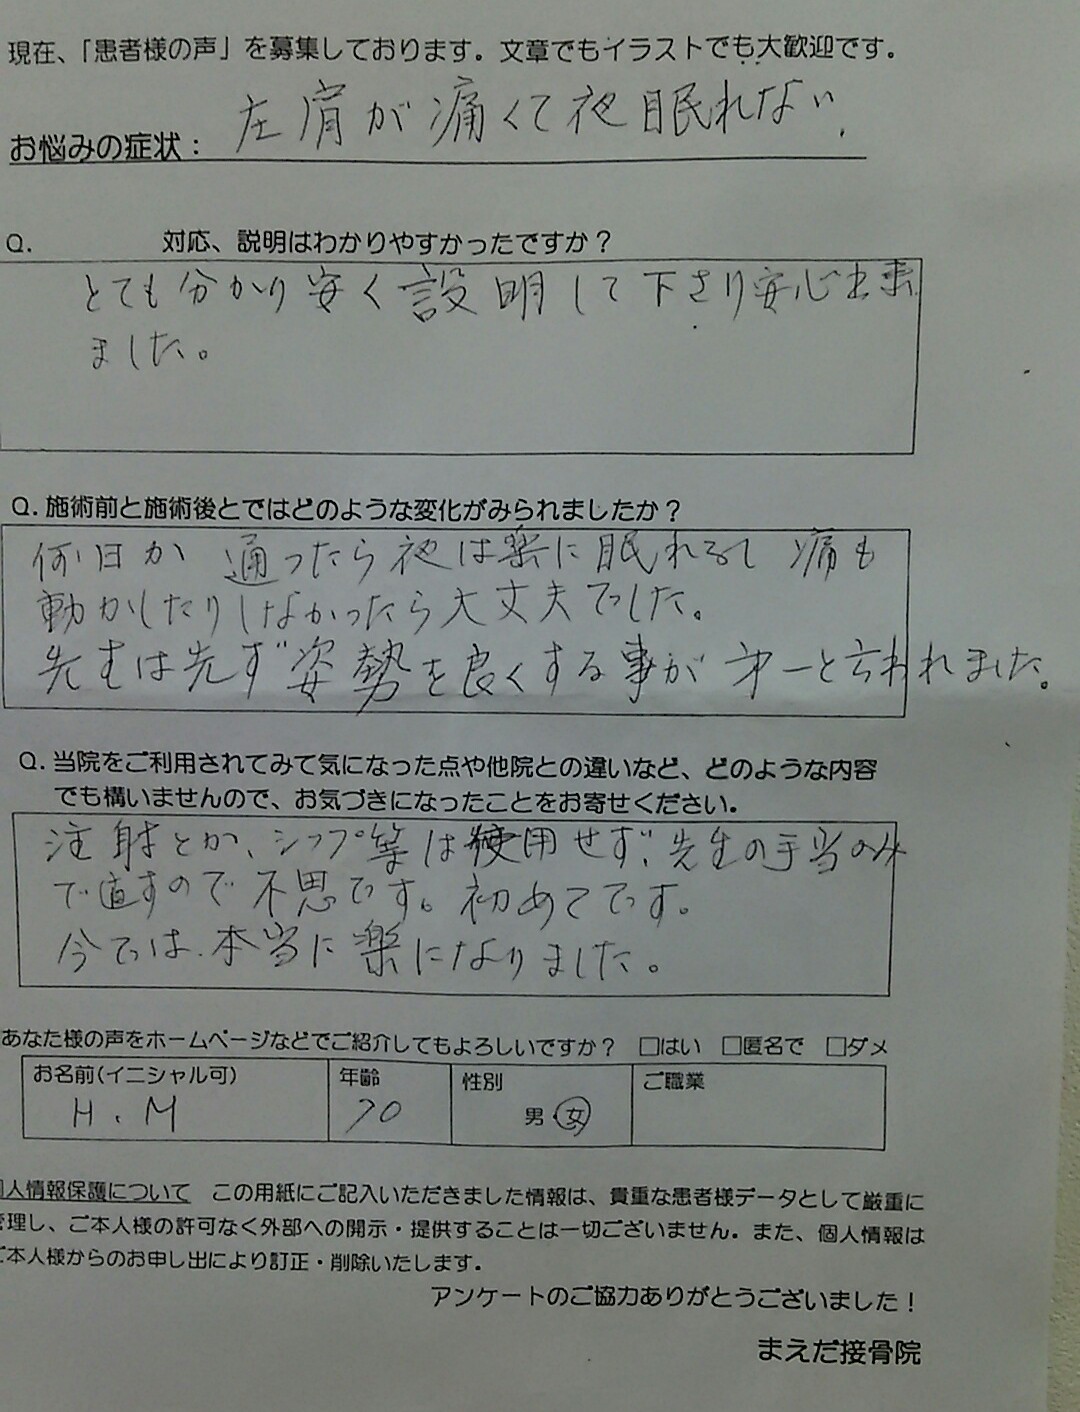 現在、「患者様の声」を募集しております。文章でもイラストでも大歓迎です。
お悩みの症状： 左肩が痛くて夜眠れない
Q. 対応、説明はわかりやすかったですか？
とても分かり安く設明して下さり安心出来
ました。
Q. 施術前と施術後とではどのような変化がみられましたか？
何日か通ったら夜は楽に眠れるし 痛も
動かしたりしなかったら大丈夫でした。
先ずは先ず姿勢を良くする事が才一と言われました。
Q. 当院をご利用されてみて気になった点や他院との違いなど、どのような内容
でも構いませんので、お気づきになったことをお寄せください。
注射とか、シップ等は使用せず、先生の手当のみ
で直すので不思です。初めてです。
今では、本当に楽になりました。
あなた様の声をホームページなどでご紹介してもよろしいですか？ □はい □匿名で □ダメ
お名前(イニシャル可) 年齢 性別 ご職業
H.M 70 男・女
個人情報保護について この用紙にご記入いただきました情報は、貴重な患者様データとして厳重に
管理し、ご本人様の許可なく外部への開示・提供することは一切ございません。また、個人情報は
ご本人様からのお申し出により訂正・削除いたします。
アンケートのご協力ありがとうございました！
まえだ接骨院